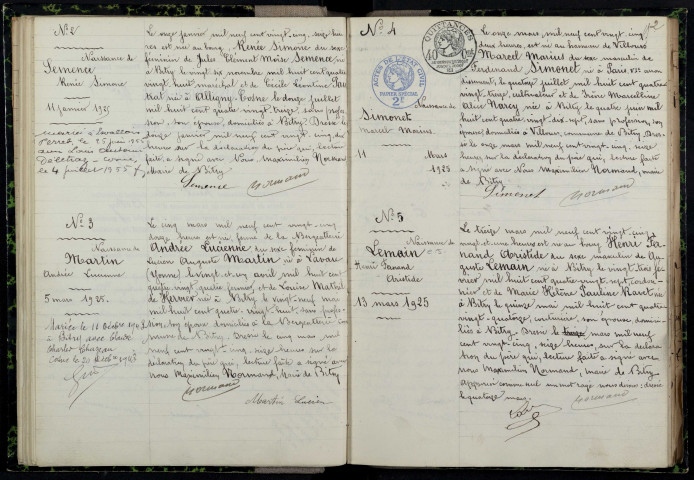 N° 2
Naissance de
Semence
Renée Simone
11 janvier 1925
Mariée à Levallois
Perret, le 25 juin 1955
avec Louis
le 4 juillet 1955
Le onze janvier mil neuf cent vingt-cinq, seize heu-
res est née au bourg Renée Simone du sexe
féminin de Jules Clément Moïse Semence né
à Bitry le vingt six novembre mil huit cent quatre
vingt-huit, maréchal, et de Cécile Léontine
née à Alligny-Cosne le douze juillet
mil huit cent quatre vingt-treize, sans profes-
sion, son épouse, domiciliés à Bitry. Dressé le
douze janvier mil neuf cent vingt-cinq, dix
heures sur la déclaration du père qui, lecture
faite, a signé avec Nous Maximilien Normand
Maire de Bitry
Semence Normand
N° 3
Naissance de
Martin
Andrée Lucienne
5 mars 1925.
Mariée le 11 octobre 1945
à Bitry avec
Charles
Cosne le
Le cinq mars mil neuf cent vingt-cinq
heure est née ferme de la Bergeatterie
Andrée Lucienne du sexe féminin de
Lucien Auguste Martin né à Lavau
(Yonne) le vingt et un avril mil huit cent
quatre-vingt-quatre, fermier, et de Louise
née à Bitry le vingt-neuf mai
mil huit cent quatre-vingt-huit, sans profes-
sion, son épouse domiciliés à la Bergeatterie com-
mune de Bitry. Dressé le cinq mars mil
neuf cent vingt-cinq, seize heures, sur la
déclaration du père qui, lecture faite a signé avec
nous Maximilien Normand, Maire de Bitry
Normand
Martin Lucien
N° 4
Naissance de
Simonet
Marcel Marius
11 Mars
1925
ACTES DE L'ÉTAT CIVIL
PAPIER SPÉCIAL
2F
QUITTANCES
2
Le onze mars mil neuf cent vingt cinq
deux heures, est né au hameau de Villours
Marcel Marius du sexe masculin de
Ferdinand Simonet né à Paris, XII arron-
dissement, le quatorze juillet mil huit cent quatre
vingt treize, cultivateur et de Irène Marcelline
Aline Narcy née à Bitry le quatre juin mil
huit cent quatre-vingt dix-sept, sans profession, son
épouse domiciliés à Villours, commune de Bitry. Dres-
sé le onze mars mil neuf cent vingt-cinq, seize
heures, sur la déclaration du père, lecture faite
a signé avec Nous Maximilien Normand, maire
de Bitry
Simonet Normand
N° 5
Naissance de
Lemain
Henri Fernand
Aristide
13 mars 1925
Le treize mars mil neuf cent vingt-cinq
vingt et une heures est né au bourg Henri Fer-
nand Aristide du sexe masculin de Au-
guste Lemain né à Bitry le vingt-trois fé-
vrier mil huit cent quatre vingt-sept, cordon-
nier et de Marie Hélène Pauline née
à Bitry le quinze mai mil huit cent quatre
vingt-quatorze, couturière, son épouse, domici-
liés à Bitry. Dressé le mars mil neuf
cent vingt-cinq, seize heures, sur la déclara-
tion du père qui, lecture faite a signé avec
nous Maximilien Normand, maire de Bitry
Approuvé comme nul un mot rayé nous dans: dressé
le quatorze mars.
Normand